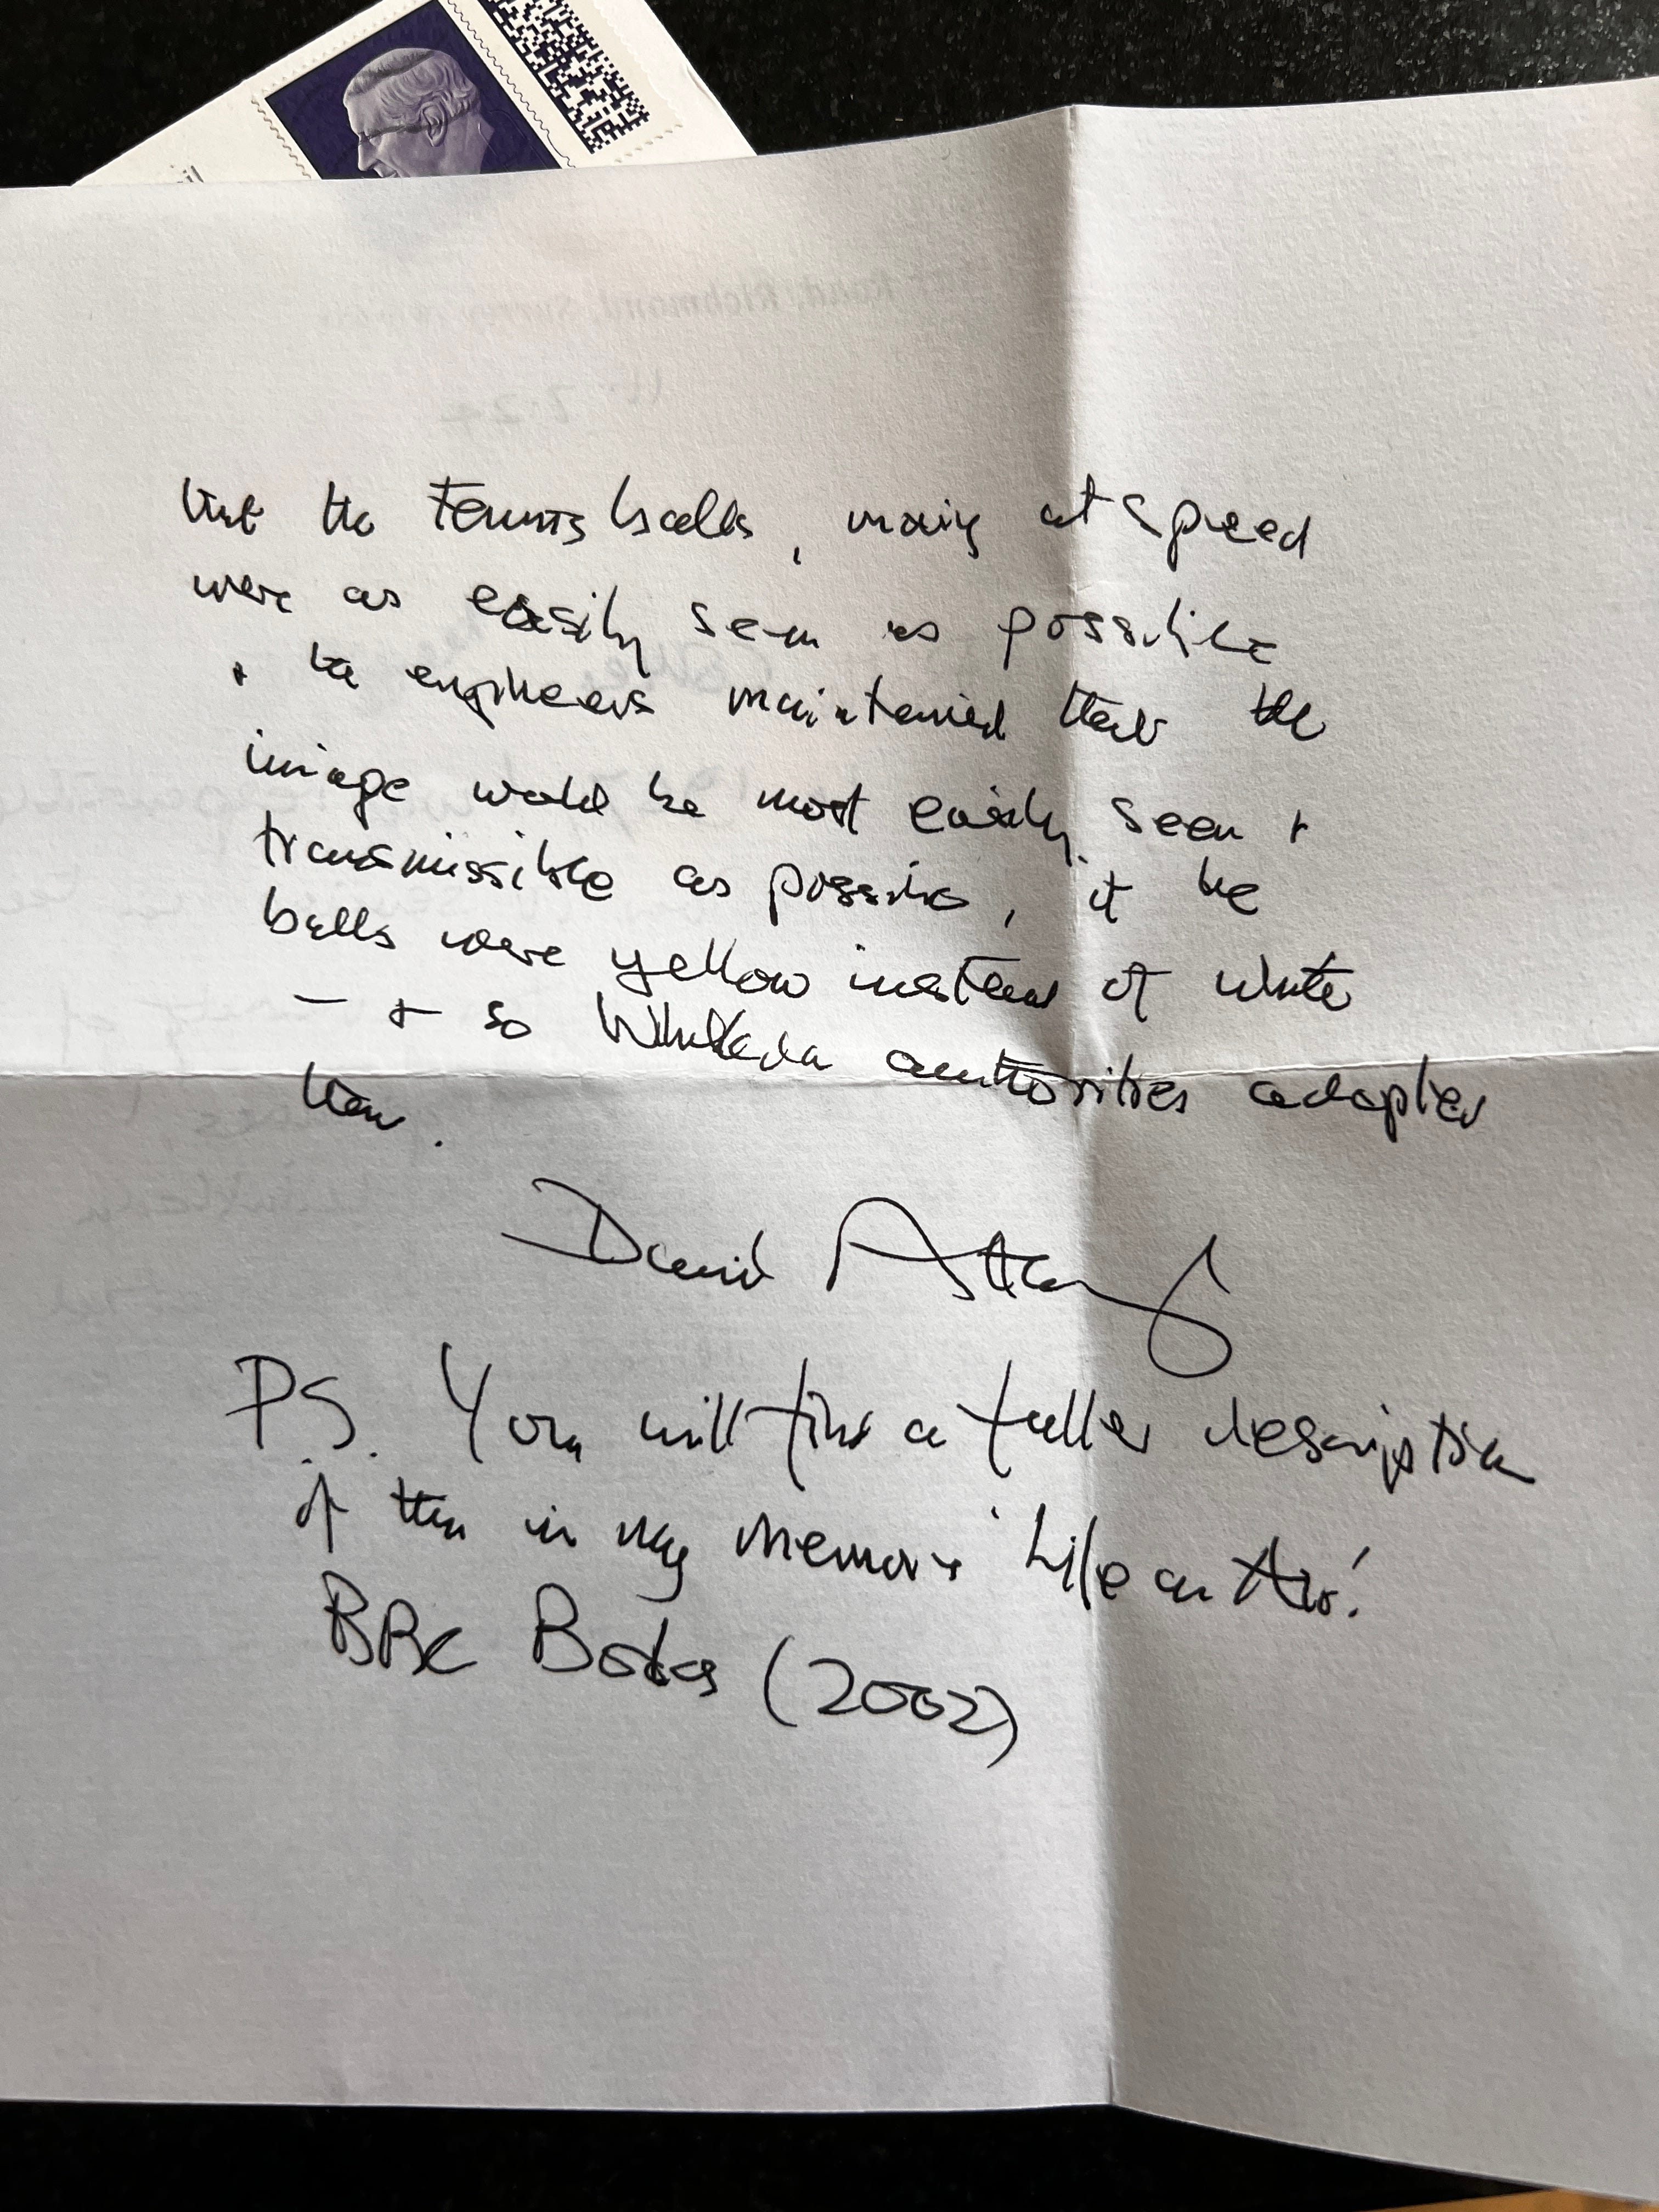 Road, Richmond, Surrey
that the tennis balls, moving at speed
were as easily seen as possible
+ the engineers maintained that the
image would be most easily seen +
transmissible as possible, if the
balls were yellow instead of white
— + so Wimbledon authorities adopted
them.
David Attenborough
PS. You will find a fuller description
of this in my memoir 'Life on Air'.
BBC Books (2002)